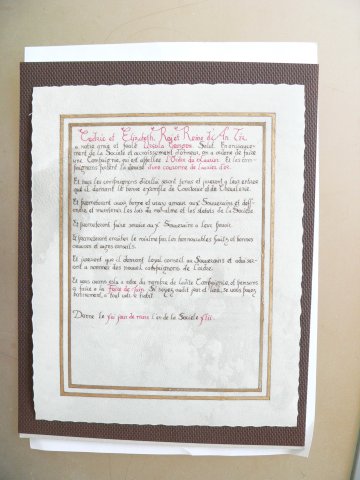 Cedric et Elizabeth, Roy et Reine d'An Tir,
a notre amez et feale Ursula Georges. Salut. En avance-
ment de la Societe et accroissement d'honeur, on a ordene de faire
une Compaignie, qui est appellee l'Ordre du Laurier. Et les com-
paignons portent la devise d'une couronne de laurier d'or.
Et tous les compaignons d'icelle sount tenus et present a leur entree
que il donnent le bonne exemple de Courtoisie et de Chevalerie.
Et prometteront avoir bonne et vraye amour aux Souverains et deff-
endre et maintenir les lois du roialme et les statuts de la Societe.
Et prometteront faire service aux Souverains a leur povoir.
Et prometteront enrichir le roialme par les honnourables faictz et bonnes
oeuvres et sages conseils.
Et jurent que il donnent loyal conseil au Souverains et eulx
a nommer des nouvel compaignons de l'ordre.
Et vous avons eslu a estre du nombre de ladite Compaignie, et pensons
a faire a la foire de Juin. Si soyez audit jour et lieu, se vous povez
bonnement, a tout votre habit.
Donne le jour de mars l'an de la Societe